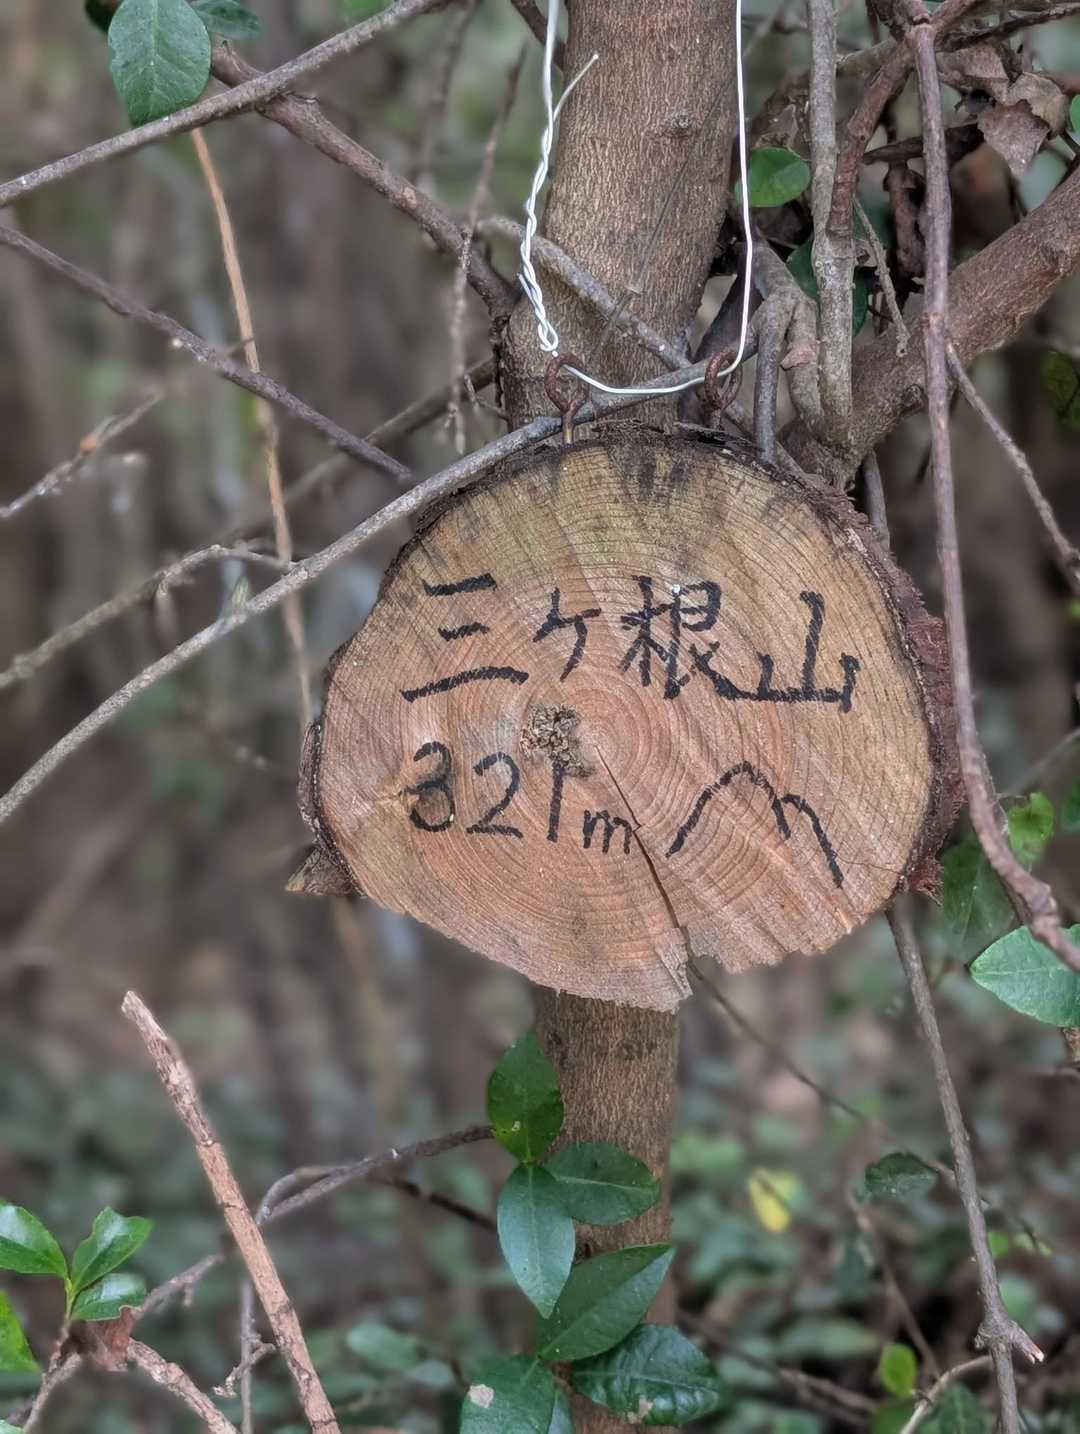 三ヶ根山
321m